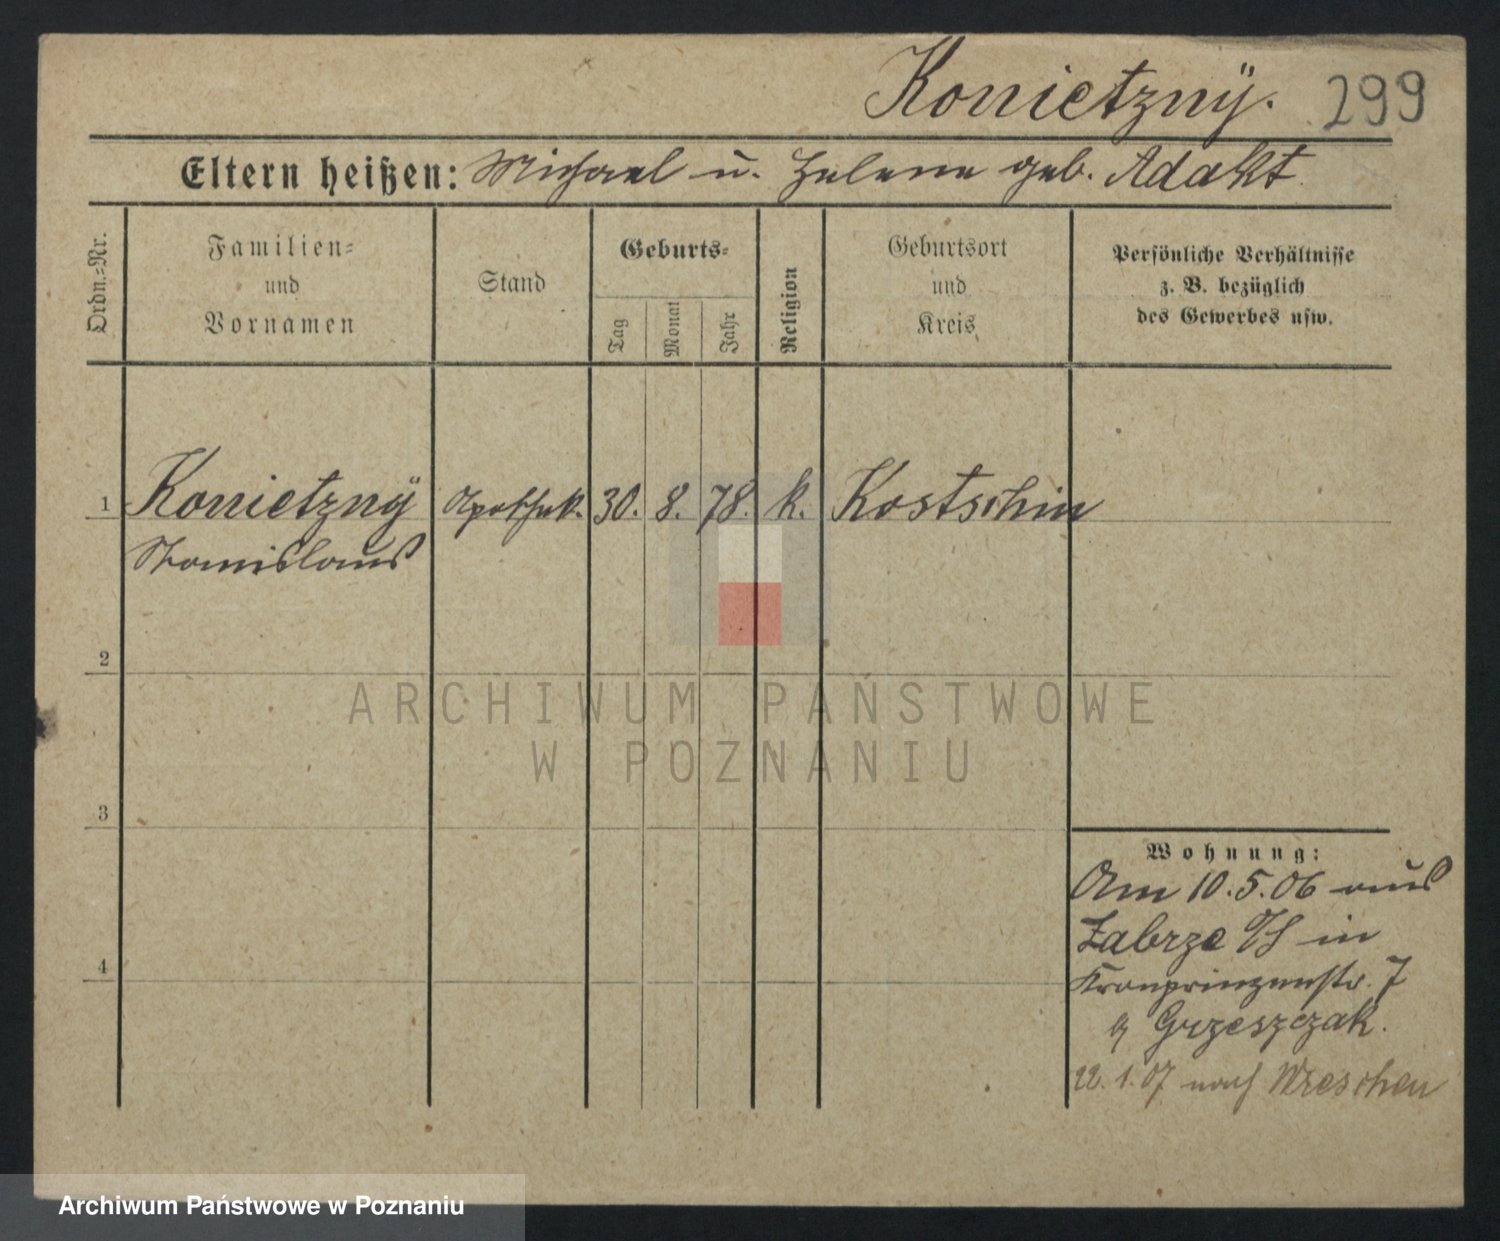 Konietznÿ. 299
Eltern heißen: Michael u. Helene geb. Adakt.
Ordn.=Nr.
Familien=
und
Vornamen
Stand
Geburts=
Tag
Monat
Jahr
Religion
Geburtsort
und
Kreis
Persönliche Verhältnisse
z. B. bezüglich
des Gewerbes usw.
1 Konietznÿ Apothek. 30. 8. 78. k. Kostschin
Stanislaus
2
3
4
Wohnung:
Am 10.5.06 aus
Zabrze O/S in
Kronprinzenstr. 7
Grzeszczak.
22.1.07 nach Wreschen
ARCHIWUM PAŃSTWOWE
W POZNANIU
Archiwum Państwowe w Poznaniu